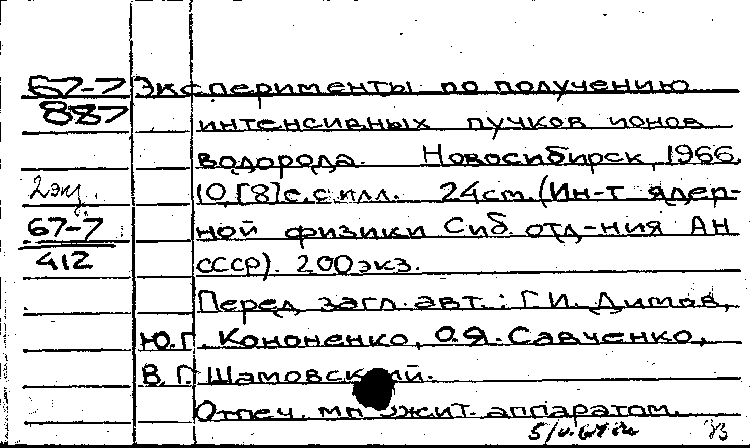 67-7 Эксперименты по получению
887 интенсивных пучков ионов
водорода. Новосибирск, 1966.
2 экз. 10 [8] с. с илл. 24 см. (Ин-т ядер-
67-7 ной физики Сиб. отд-ния АН
412 СССР). 200 экз.
Перед загл. авт.: Г.И. Димов,
Ю.Г. Кононенко, О.Я. Савченко,
В.Г. Шамовский.
Отпеч. множит. аппаратом.